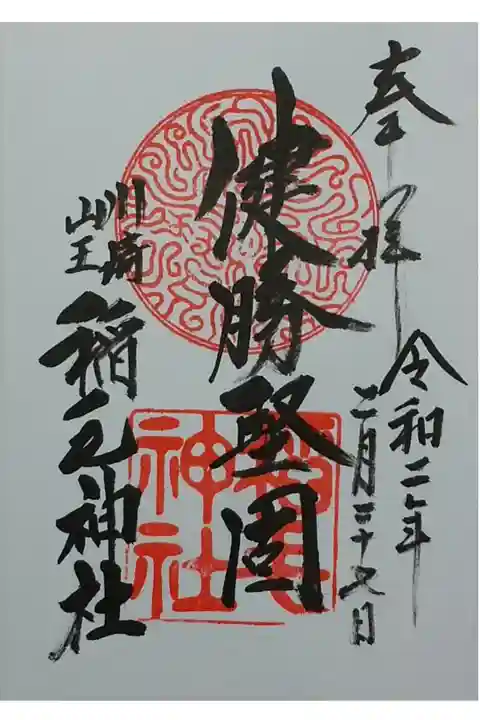 奉拝
令和二年
二月二十九日
健勝堅固
川崎
山王
稲毛神社
稲毛
神社